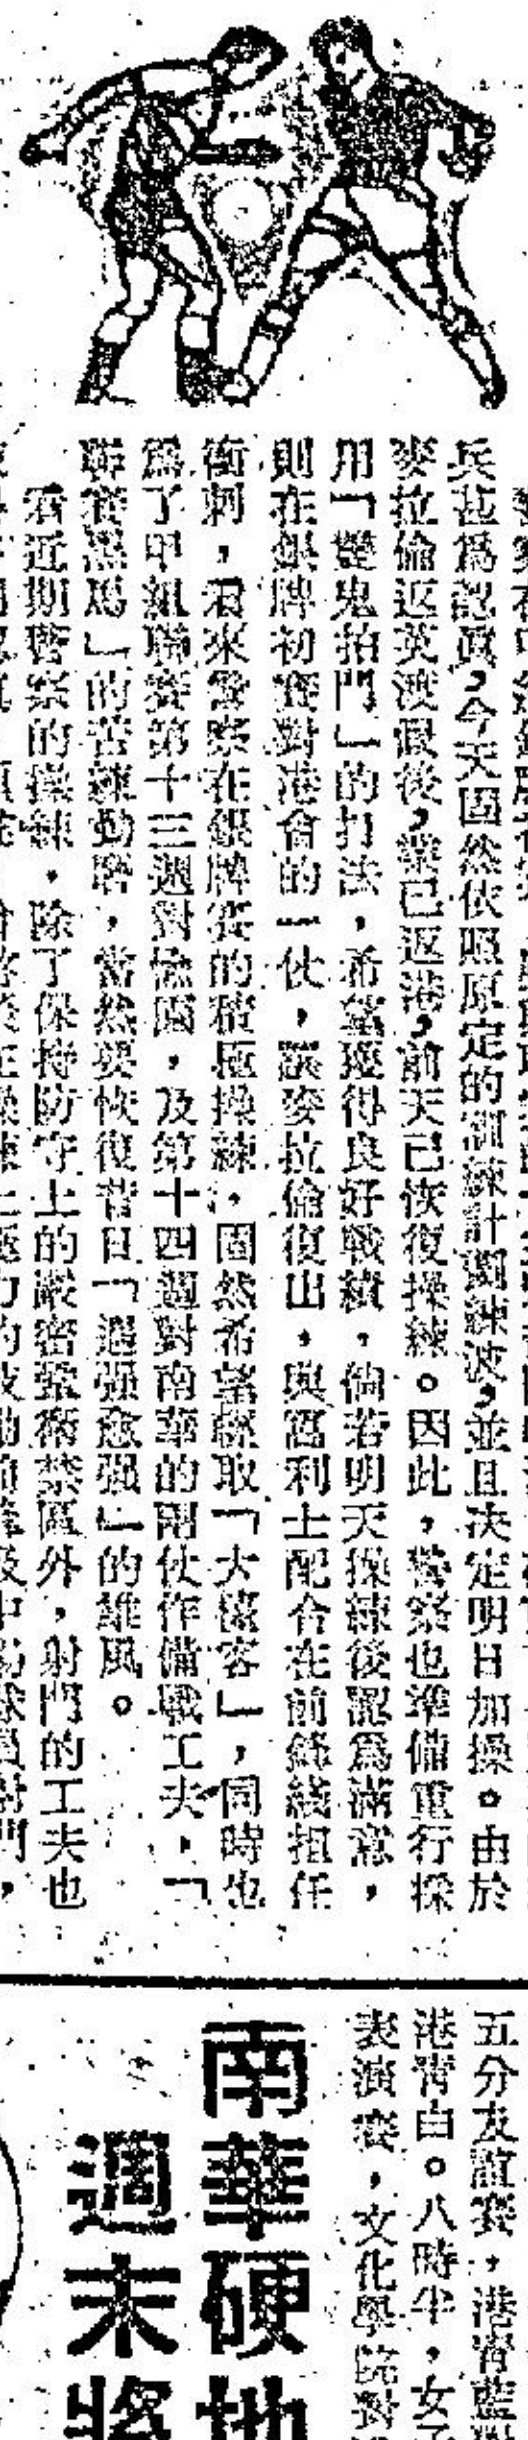 兵甚爲認眞，今天固然依照原定的訓練計劃練波，並且决定明日加操。由於
麥拉倫返英渡假後，業已返港，前天已恢復操練。因此，警察也準備重行採
用「雙鬼拍門」的打法，希望獲得良好戰績，倘若明天操練後認爲滿意，
則在銀牌初賽對港會的一仗，讓麥拉倫復出，與富利士配合在前鋒綫担任
衝刺，看來警察在銀牌賽的積極操練，固然希望輕取「大懷客」，同時也
爲了甲組聯賽第十三週對愉園，及第十四週對南華的兩仗作備戰工夫，「
聯賽黑馬」的苦練勤習，當然要恢復昔日「遇强愈强」的雄風。
看近期警察的操練，除了保持防守上的嚴密拱衛禁區外，射門的工夫也
五分友誼賽，港青藍對
港青白。八時半，女子
表演賽，文化學院對
南華硬地
週末將